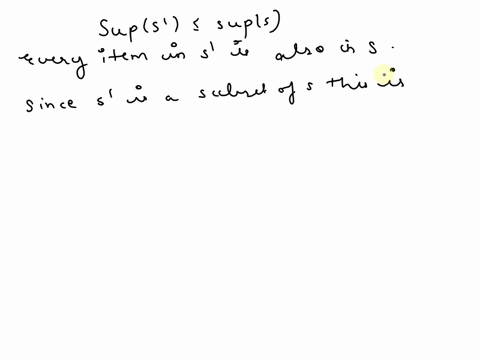 Sup(s') ≤ sup(s)
Every item in s' is also in s.
Since s' is a subset of s this is